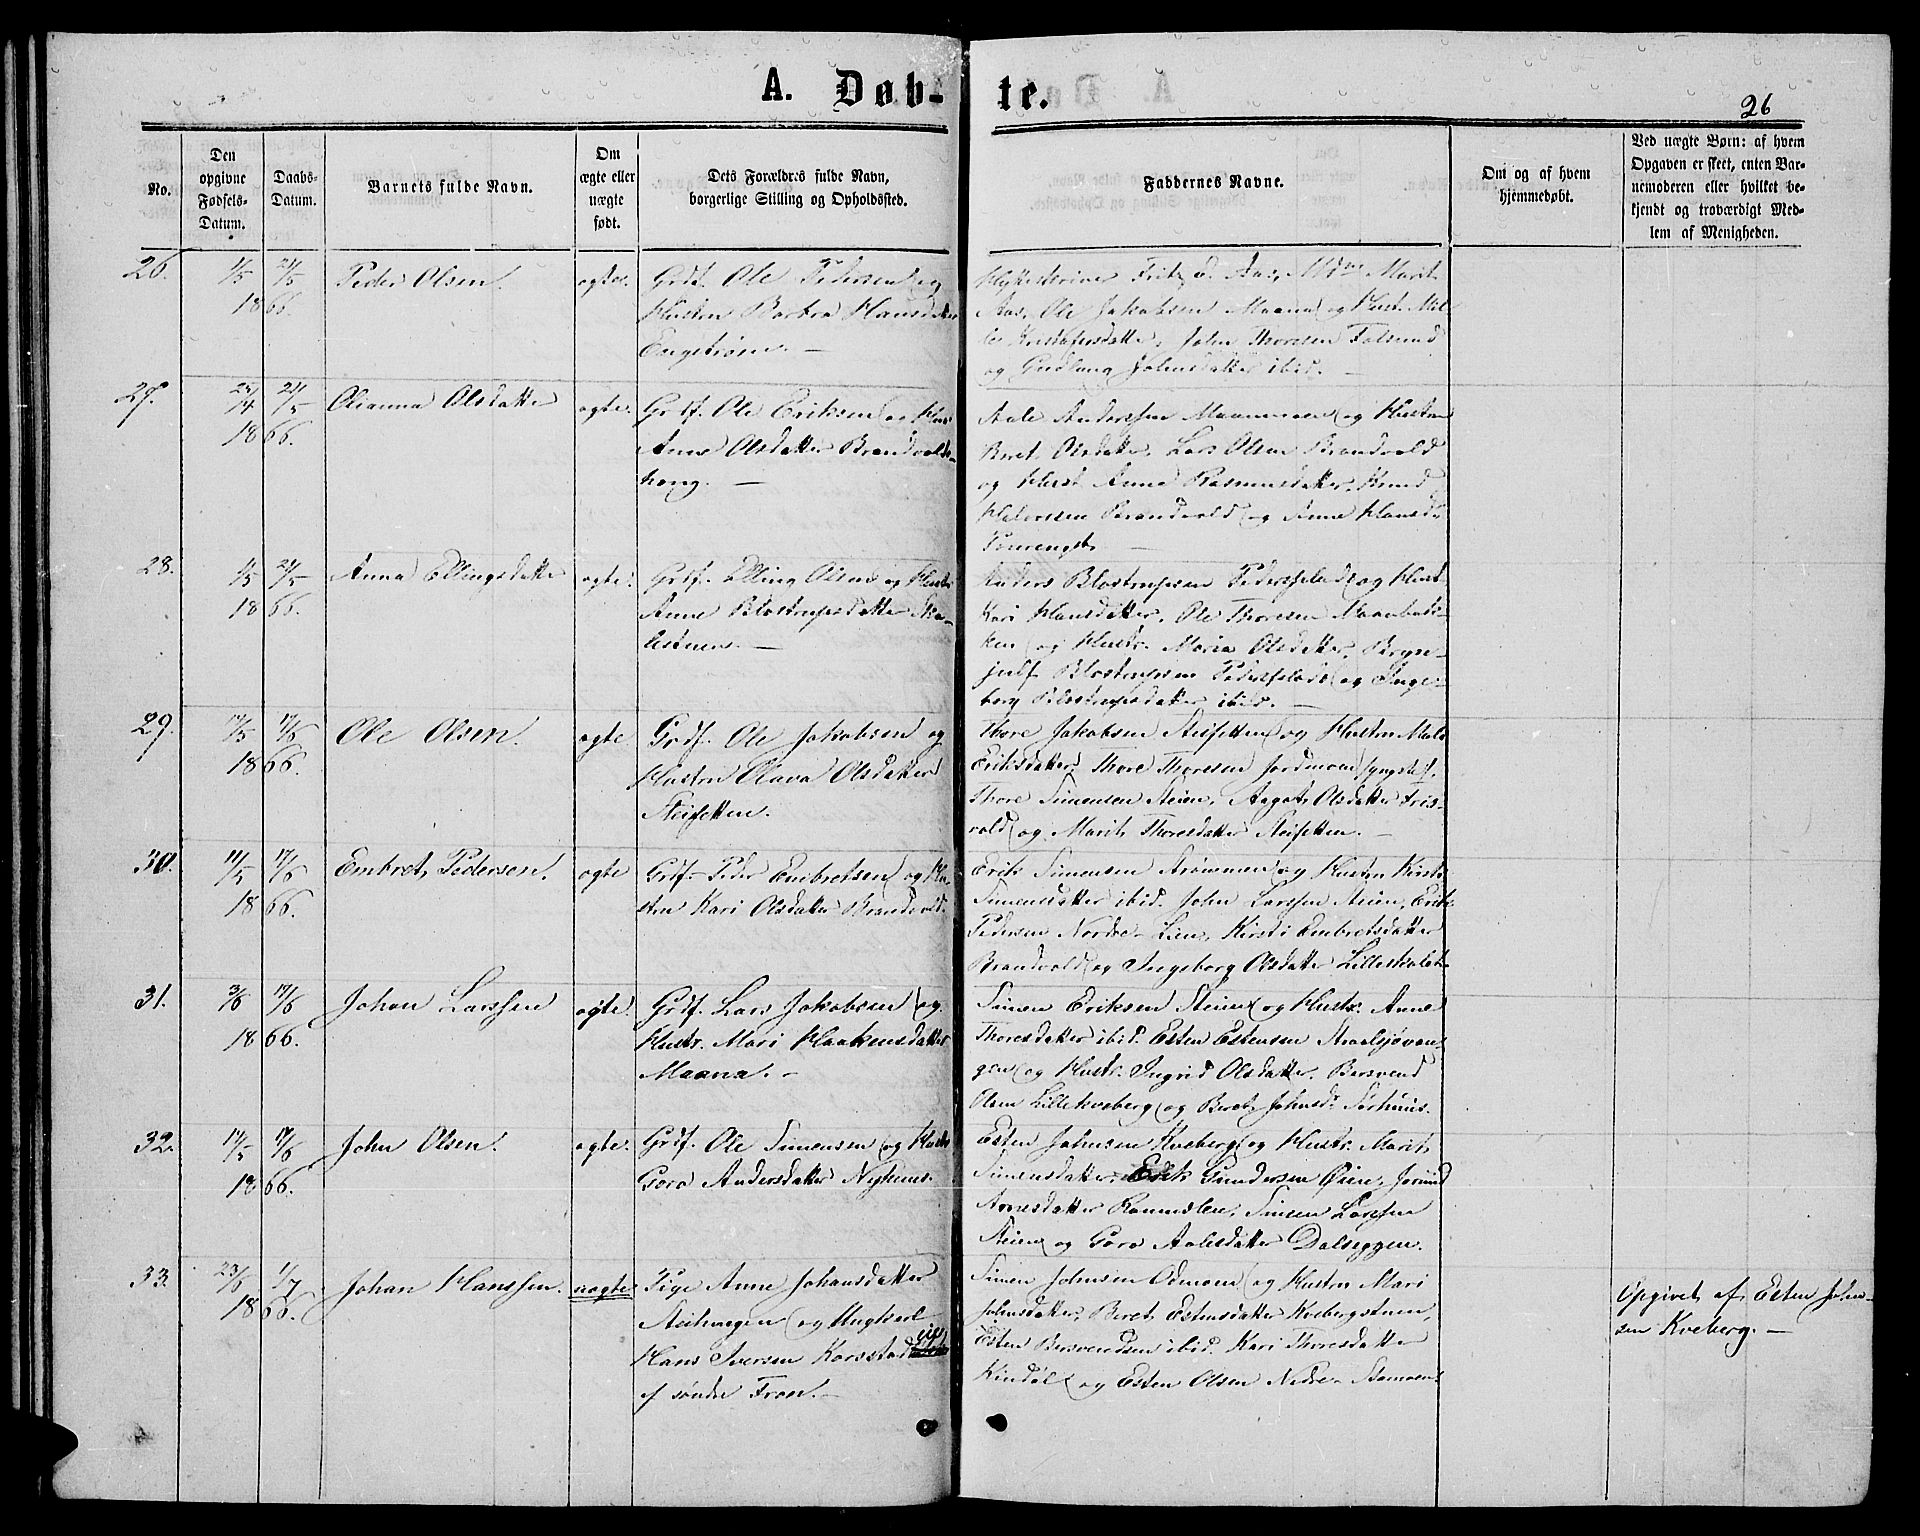 A. Døb-
te.
26
No.
Den
opgivne
Fødsels-
Datum.
Daabs-
Datum.
Barnets fulde Navn.
Om
ægte eller
uægte
født.
Dets Forældres fulde Navn,
borgerlige Stilling og Opholdssted.
Faddernes Navne.
Om og af hvem
hjemmedøbt.
Ved uægte Børn: af hvem
Opgaven er skeet, enten Bar-
nemoderen eller hvilket be-
kjendt og troværdigt Med-
lem af Menigheden.
26.
1/5
21/5
1866.
Peder Olsen.
ægte.
Grdf. Ole Pedersen og
Hustru Barbra Hansdatter
Engstrøm. —
Aas, Marit
Aas, Ole Jakobsen Maana og Hust.
John Thoresen
og Gudlaug Johnsdatter ibid. —
27.
24/4
21/5
1866.
Olianna Olsdatter
ægte.
Grdf. Ole Eriksen og Hust
Anne Olsdatter Brandvolds-
houg. —
Aale Anderssen Maanmoen og Hustru
Beret Olsdatter, Lars Olsen Brandvold
og Hust. Anne Rasmusdatter, Knud
Brandvold og Anne Hansd.
28.
4/5
21/5
1866.
Anna Ellingsdatter
ægte.
Grdf. Elling Olsen og Hust
Anne Blostrupsdatter
Anders Blostrupsen og Hust.
Kari Hansdatter, Ole Thoresen Maanbak-
ken og Hustr. Maria Olsdatter, Bryn-
julf Blostrupsen og Inge-
borg Blostrupsdatter ibid. —
29.
17/5
17/6
1866.
Ole Olsen.
ægte
Grdf. Ole Jakobsen og
Hustru Olava Olsdatter
Steisetten.
Thore Jakobsen Steisetten og Hustru
Eriksdatter, Thore Thoresen Jordmoen
Thore Simensen Steien, Aagot Olsdatter Fris-
vold og Marit Thoresdatter Steisetten. —
30.
11/5
17/6
1866.
Embret Pedersen.
ægte
Grdf. Peder Embretsen og Hu-
stru Kari Olsdatter Brandvold.
Erik Simensen Strømmen og Hustru Kirsti
Simensdatter ibid. John Larssen Steien, Erik
Pedersen Nordre-Lien, Kirsti Embretsdatter
Brandvold og Ingeborg Olsdatter
31.
3/6
17/6
1866.
Johan Larssen
ægte.
Grdf. Lars Jakobsen og
Hustr. Mari Haakensdatter
Maana. —
Simen Eriksen Steien og Hustr. Anne
Thoresdatter ibid. Esten Estensen Straalsjøvan-
gen og Hustr. Ingrid Olsdatter. Bersvend
Olsen Lillekveberg og Beret Johnsd.
32.
17/5
17/6
1866.
John Olsen.
ægte.
Grdf. Ole Simensen og Hustr
Goro Andersdatter Nyhuus.
Esten Johnsen Kveberg og Hustr. Marit
Simensdatter, Erik Gundersen Øien, Jørund
Arnesdatter Simen Larssen
Steien og Goro Aalesdatter Dalseggen.
33.
23/6
1/7
1866.
Johan Hanssen.
uægte
Pige Anne Johansdatter
og Ungkarl
Hans Iversen Korsstad
af søndre Fron. —
Simen Johnsen Odmoen og Hustru Mari
Johnsdatter, Beret Estensdatter Kvebergstuen,
Esten Bersvendsen ibid. Kari Thoresdatter
Kindøl og Esten Olsen Nedre-
Opgivet af Esten John-
sen Kveberg. —